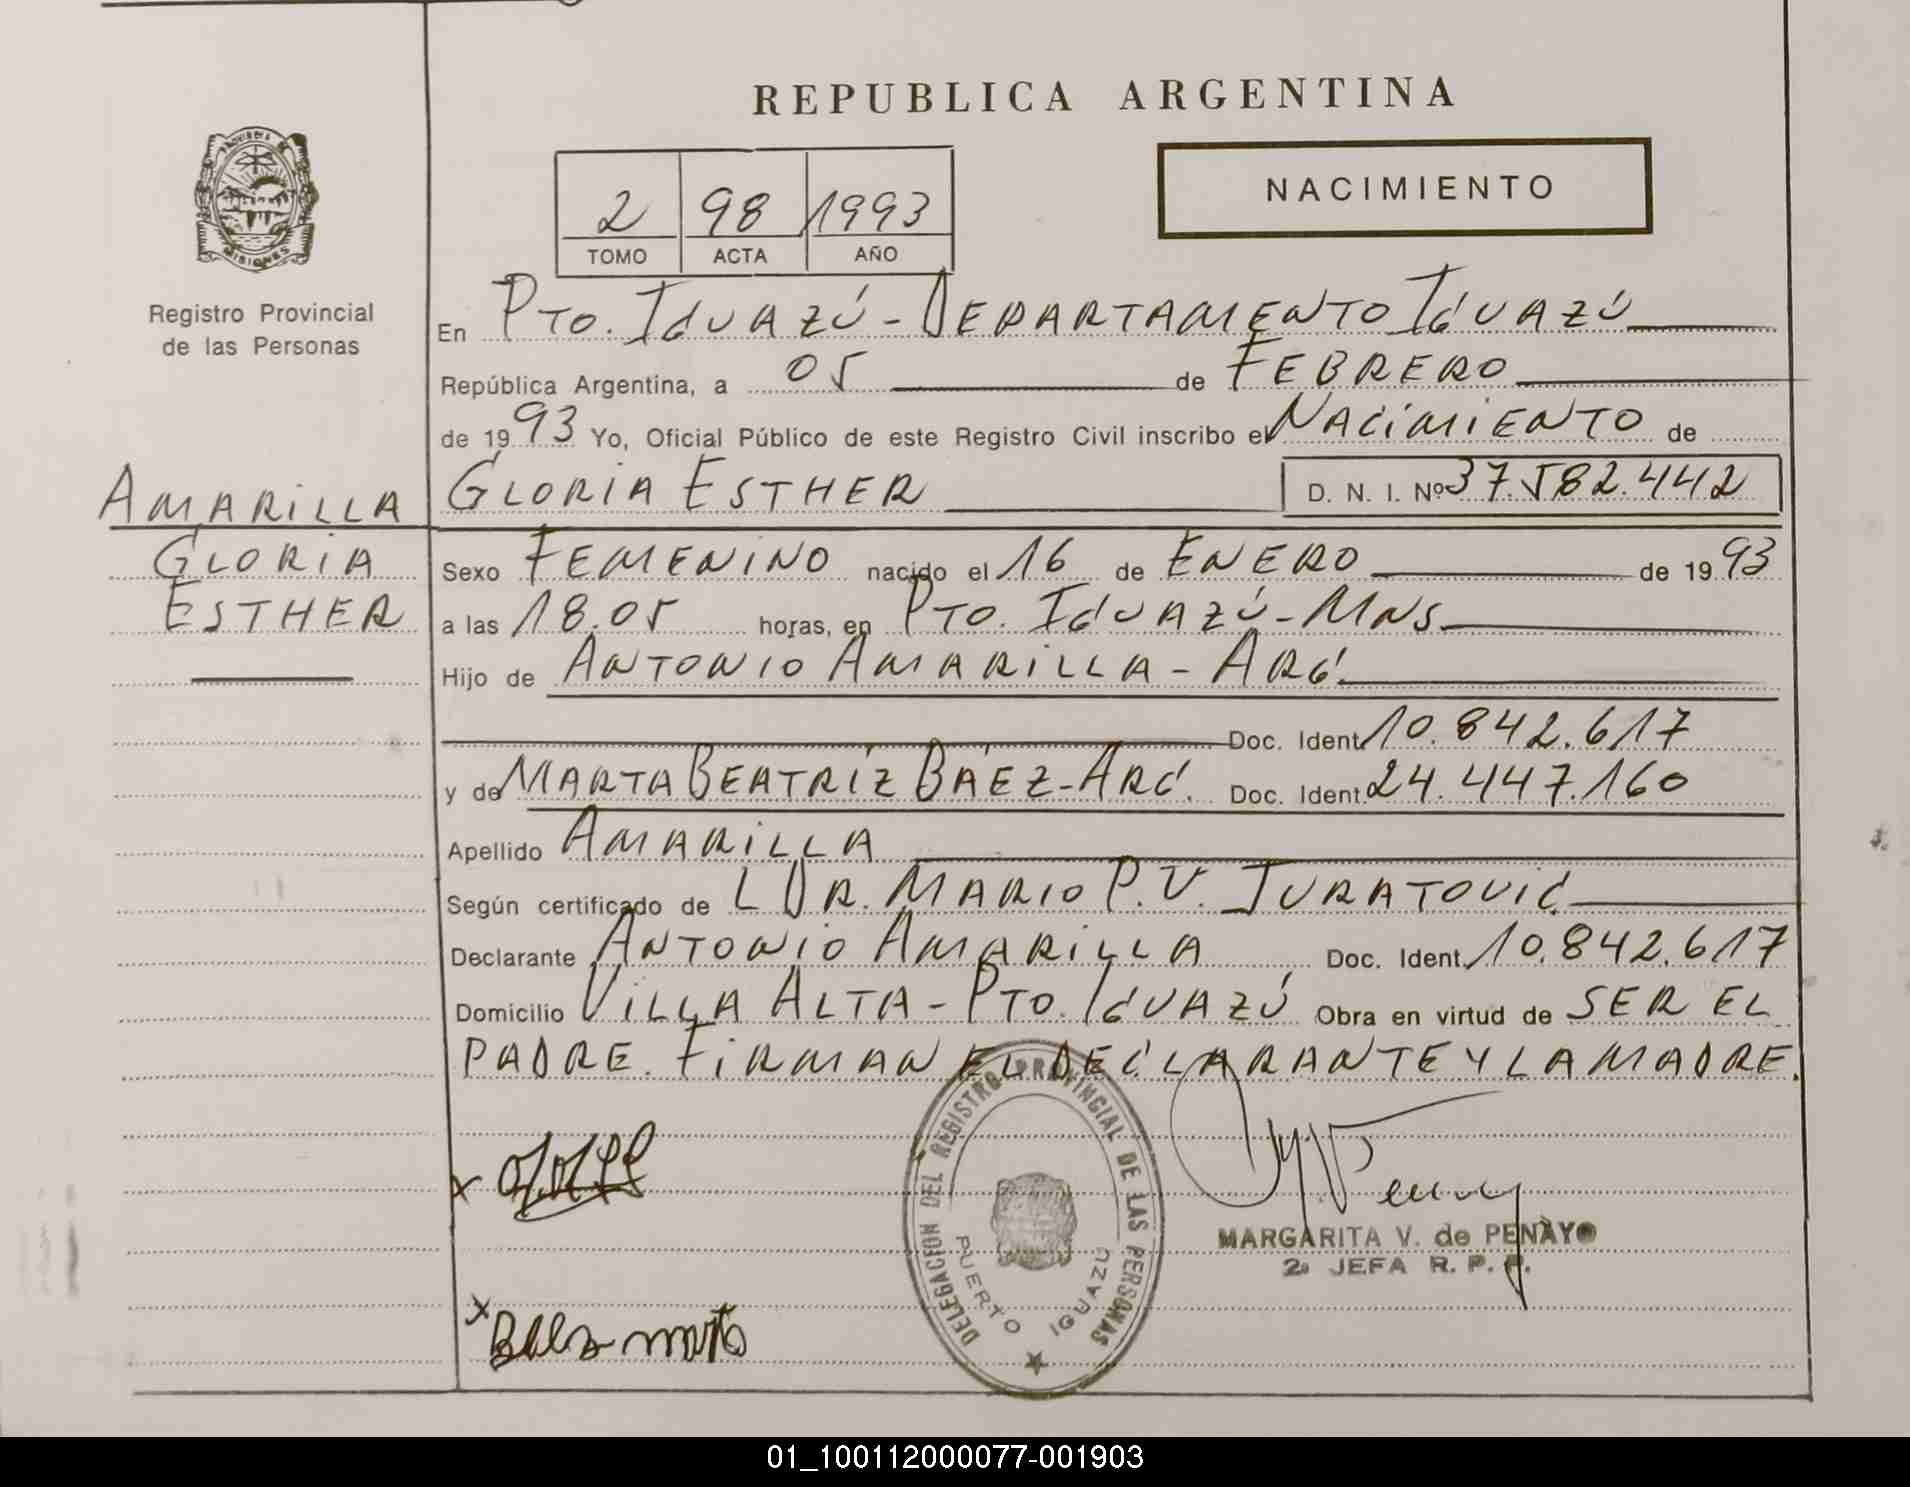 REPUBLICA ARGENTINA
PROVINCIA DE MISIONES
NACIMIENTO
2 98 1993
TOMO ACTA AÑO
Registro Provincial
de las Personas
En PTO. IGUAZÚ - DEPARTAMENTO IGUAZÚ
República Argentina, a 05 de FEBRERO
de 1993 Yo, Oficial Público de este Registro Civil inscribo el NACIMIENTO de
GLORIA ESTHER D. N. I. Nº 37.582.442
AMARILLA
GLORIA
ESTHER
Sexo FEMENINO nacido el 16 de ENERO de 1993
a las 18.05 horas, en PTO. IGUAZÚ - MNS.
Hijo de ANTONIO AMARILLA - ARG.
Doc. Ident. 10.842.617
y de MARTA BEATRÍZ BÁEZ - ARG. Doc. Ident. 24.447.160
Apellido AMARILLA
Según certificado de L DR. MARIO P.V. JURATOVIC
Declarante ANTONIO AMARILLA Doc. Ident. 10.842.617
Domicilio VILLA ALTA - PTO. IGUAZÚ Obra en virtud de SER EL
PADRE. FIRMAN EL DECLARANTE Y LA MADRE.
DELEGACION DEL REGISTRO PROVINCIAL DE LAS PERSONAS
PUERTO IGUAZU
MARGARITA V. de PENAYO
2ª JEFA R. P. P.
x
x Baez marta
01_100112000077-001903